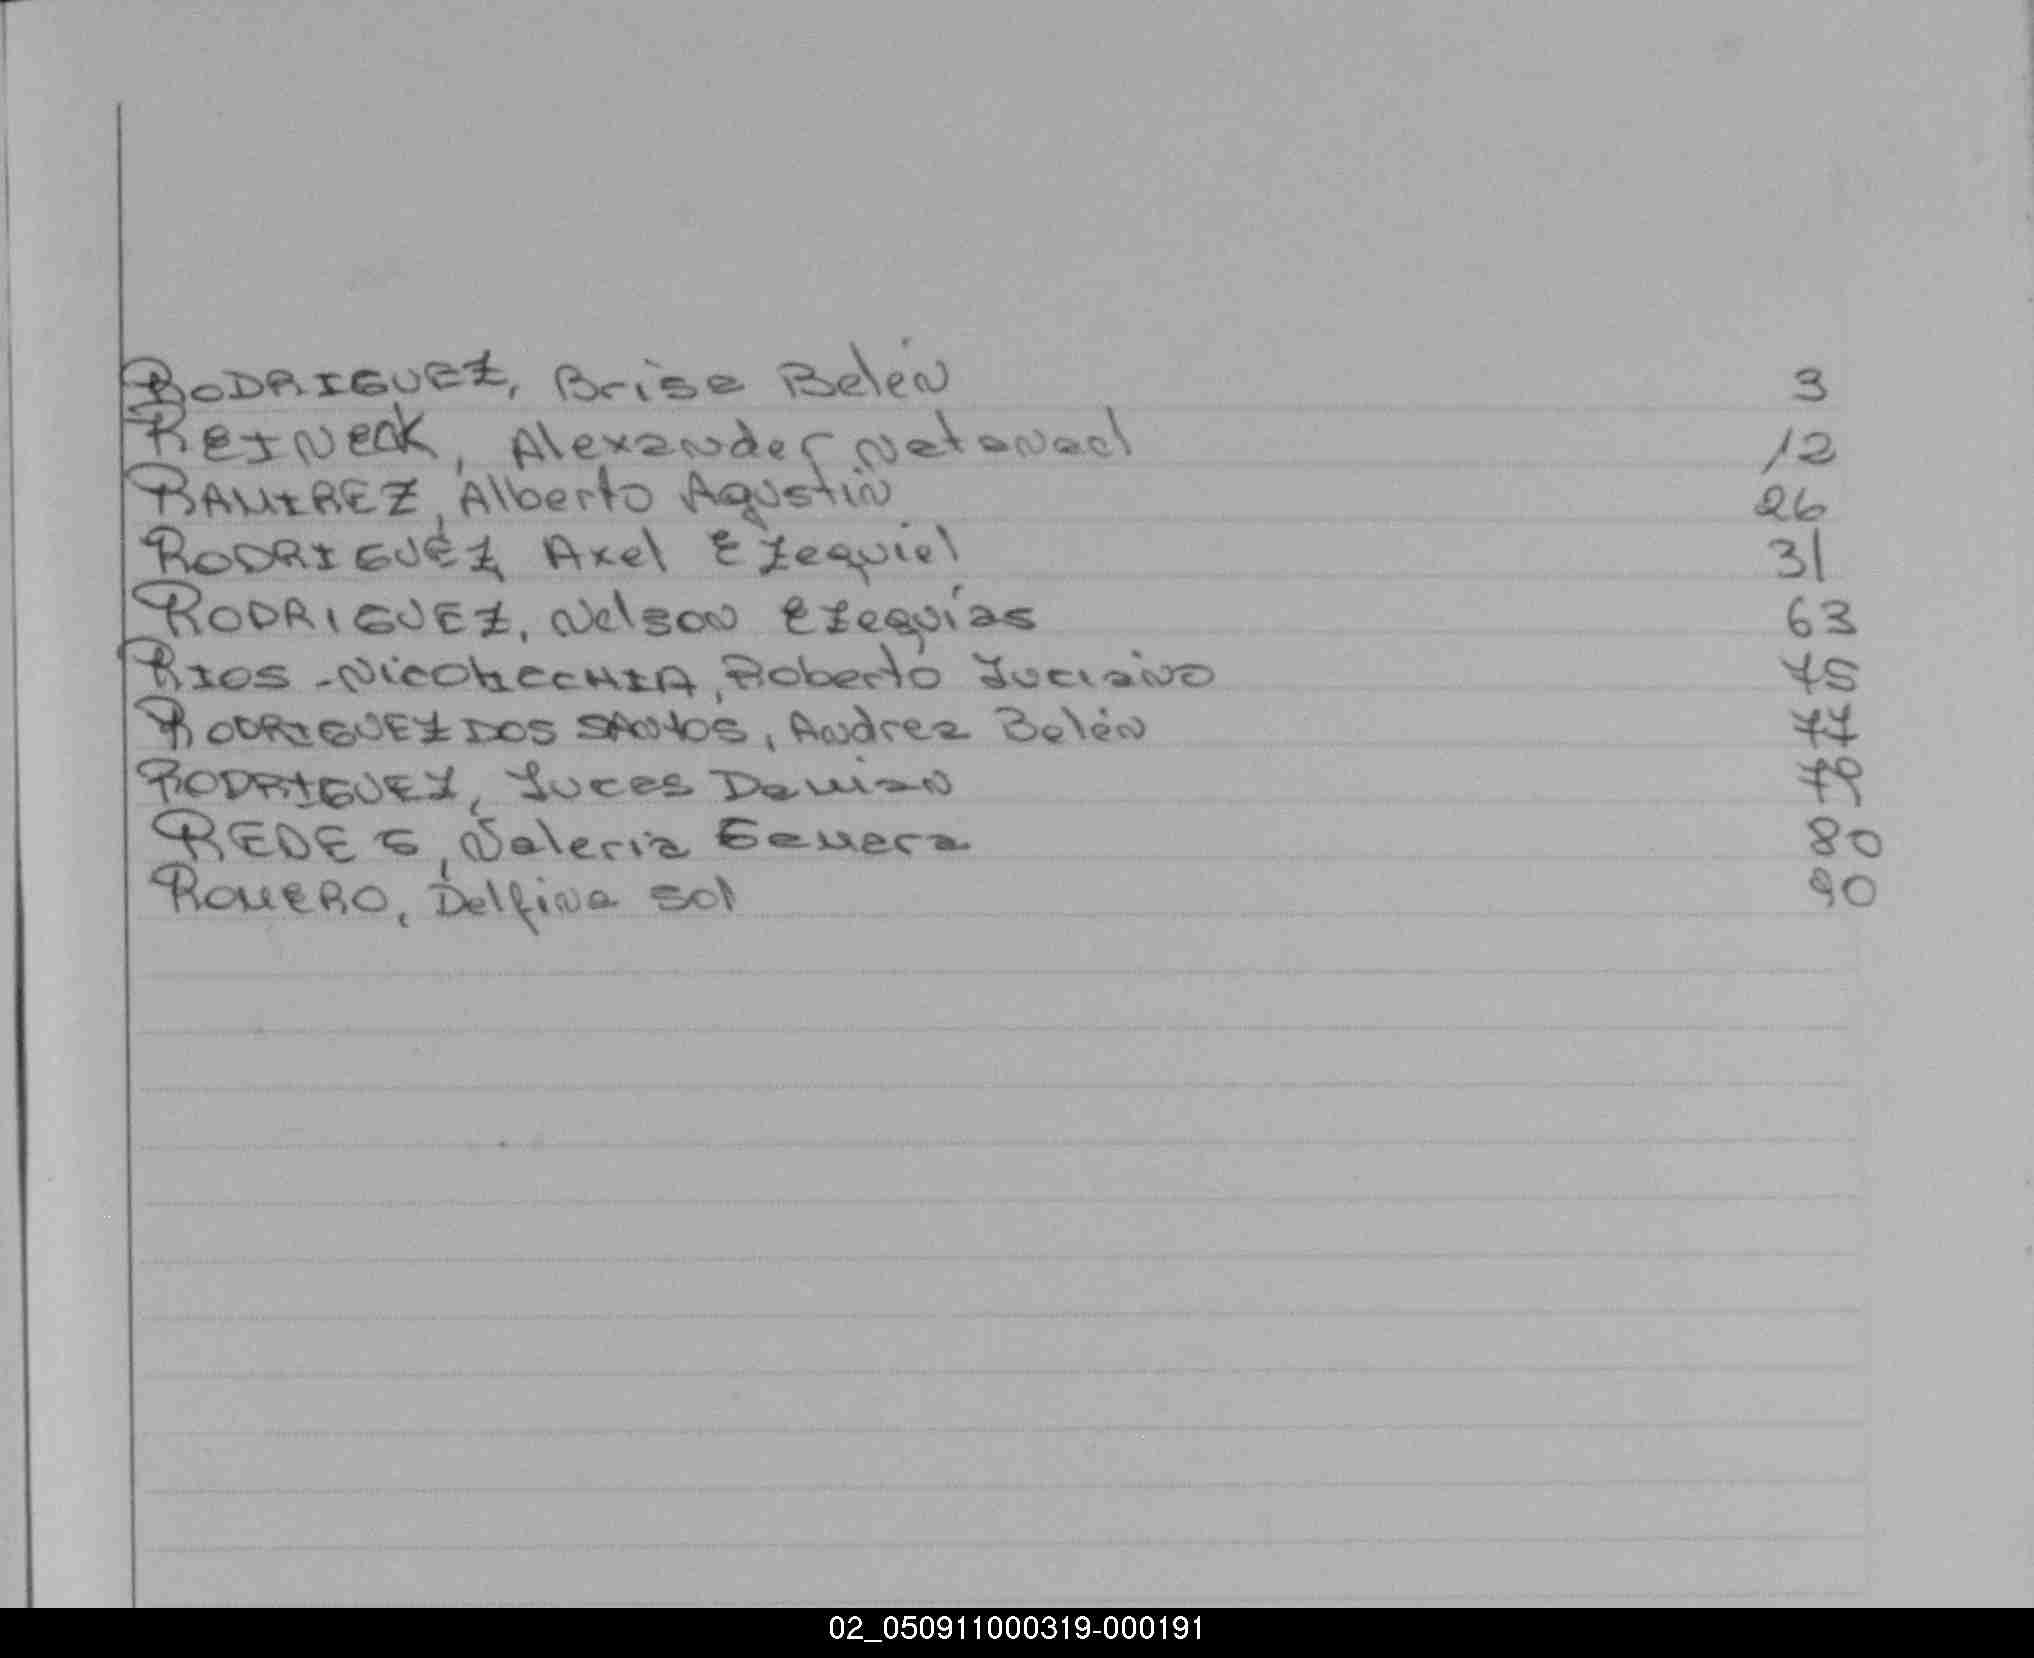 RODRIGUEZ, Brisa Belén 3
REINECK, Alexander Natanael 12
RAMIREZ, Alberto Agustin 26
RODRIGUEZ, Axel Ezequiel 31
RODRIGUEZ, Nelson Ezequías 63
RIOS - Roberto Luciano 75
RODRIGUEZ DOS SANTOS, Andrea Belén 77
RODRIGUEZ, Lucas Damian 79
REDES, Valeria Gemera 80
ROMERO, Delfina Sol 90
02_050911000319-000191